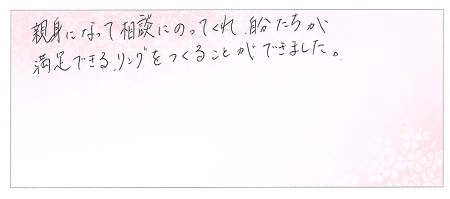 親身になって相談にのってくれ、自分たちが
満足できるリングをつくることができました。